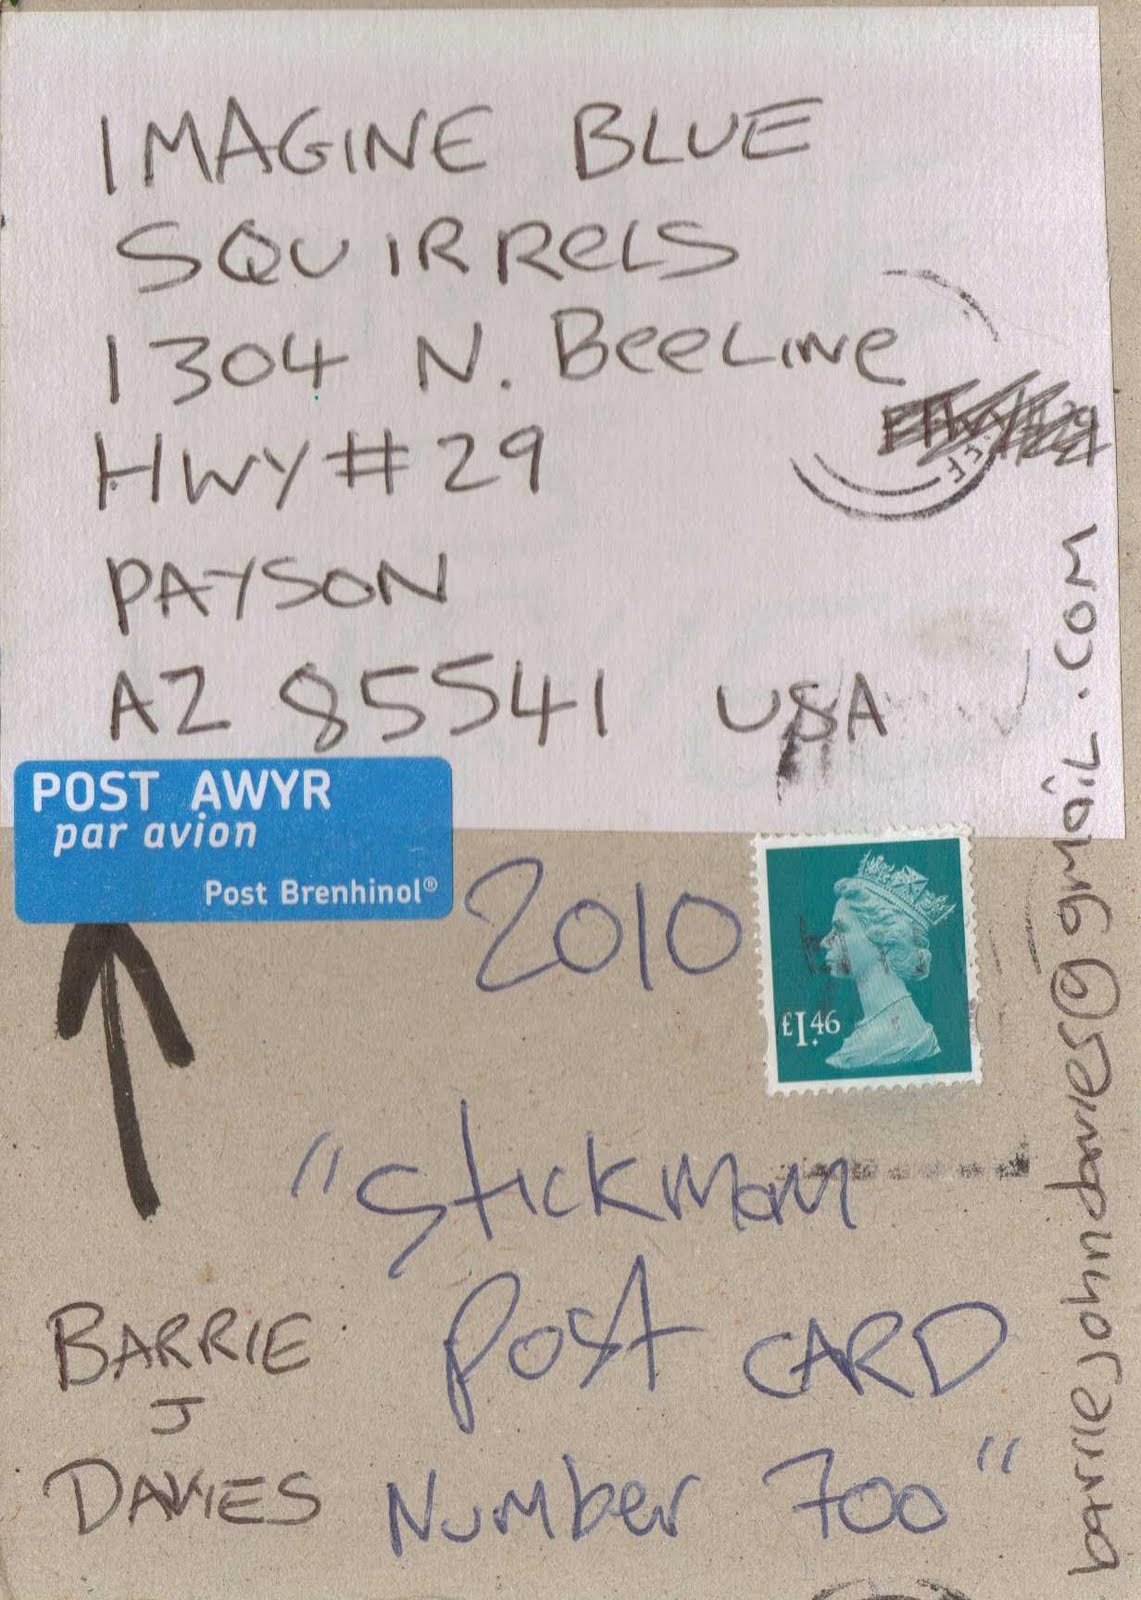 IMAGINE BLUE
SQUIRRELS
1304 N. BeeLiNe
HWY # 29
PAYSON
AZ 85541 USA
POST AWYR
par avion
Post Brenhinol®
2010
£1.46
"Stickman
Post CARD
Number 700"
BARRIE
J
DAVIES
barriejohndavies@gmail.com